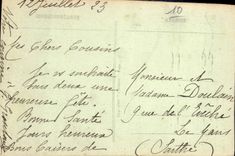 12 Juillet 23
10
Mes Chers Cousins
Je vous souhaite
tous deux une
heureuse fête.
Bonne Santé
Jours heureux
Bons Baisers de
Monsieur et
Madame Doulain
rue de l'Evêché
Le Mans
Sarthe